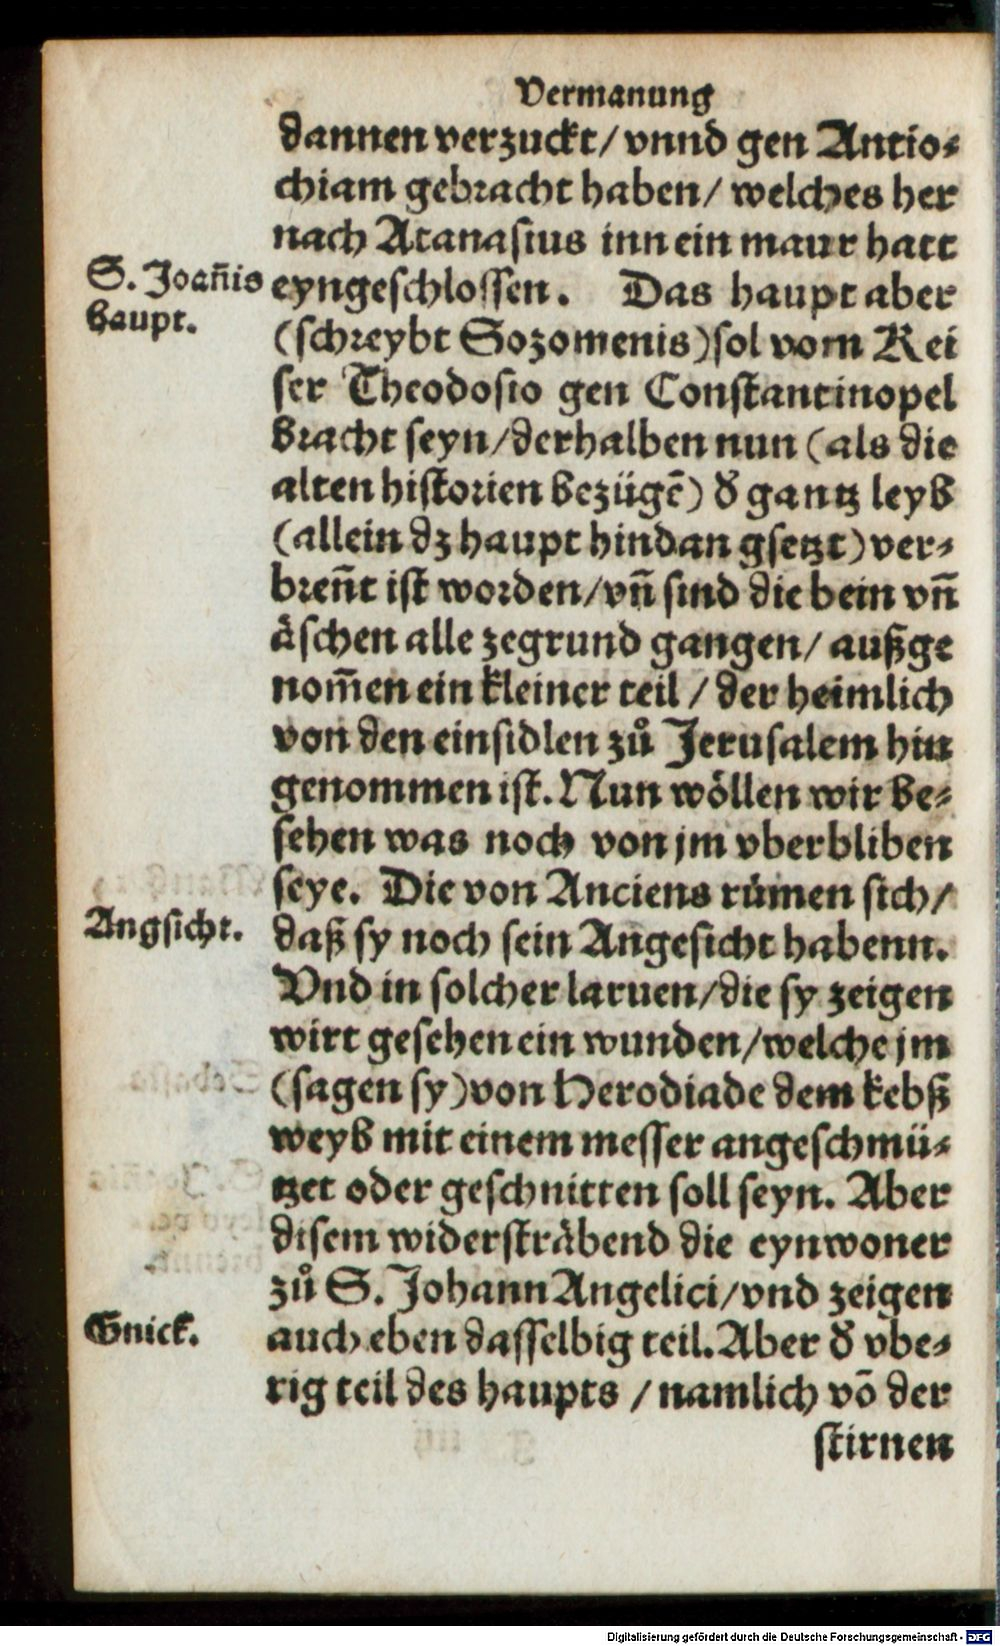 Vermanung
dannen verzuckt/ vnnd gen Antio⸗
chiam gebracht haben/ welches her
nach Atanasius inn ein maur hatt
S. Joan̄is
haupt.
eyngeschlossen. Das haupt aber
(schreybt Sozomenis) sol vom Kei
ser Theodosio gen Constantinopel
bracht seyn/ derhalben nun (als die
alten historien bezügē) d̕ gantz leyb
(allein dz haupt hindan gsetzt) ver⸗
bren̄t ist worden/ vn̄ sind die bein vn̄
äschen alle zegrund gangen/ außge
nom̄en ein kleiner teil / der heimlich
von den einsidlen zů Jerusalem hin
genommen ist. Nun wöllen wir be⸗
sehen was noch von jm vberbliben
seye. Die von Anciens rümen sich/
Angsicht.
daß sy noch sein Angesicht habenn.
Vnd in solcher laruen/ die sy zeigen
wirt gesehen ein wunden/ welche jm
(sagen sy) von Herodiade dem kebß
weyb mit einem messer angeschmü⸗
tzet oder geschnitten soll seyn. Aber
disem widersträbend die eynwoner
zů S. Johann Angelici/ vnd zeigen
Gnick.
auch eben dasselbig teil. Aber d̕ vbe⸗
rig teil des haupts / namlich vō der
stirnen
Digitalisierung gefördert durch die Deutsche Forschungsgemeinschaft - DFG